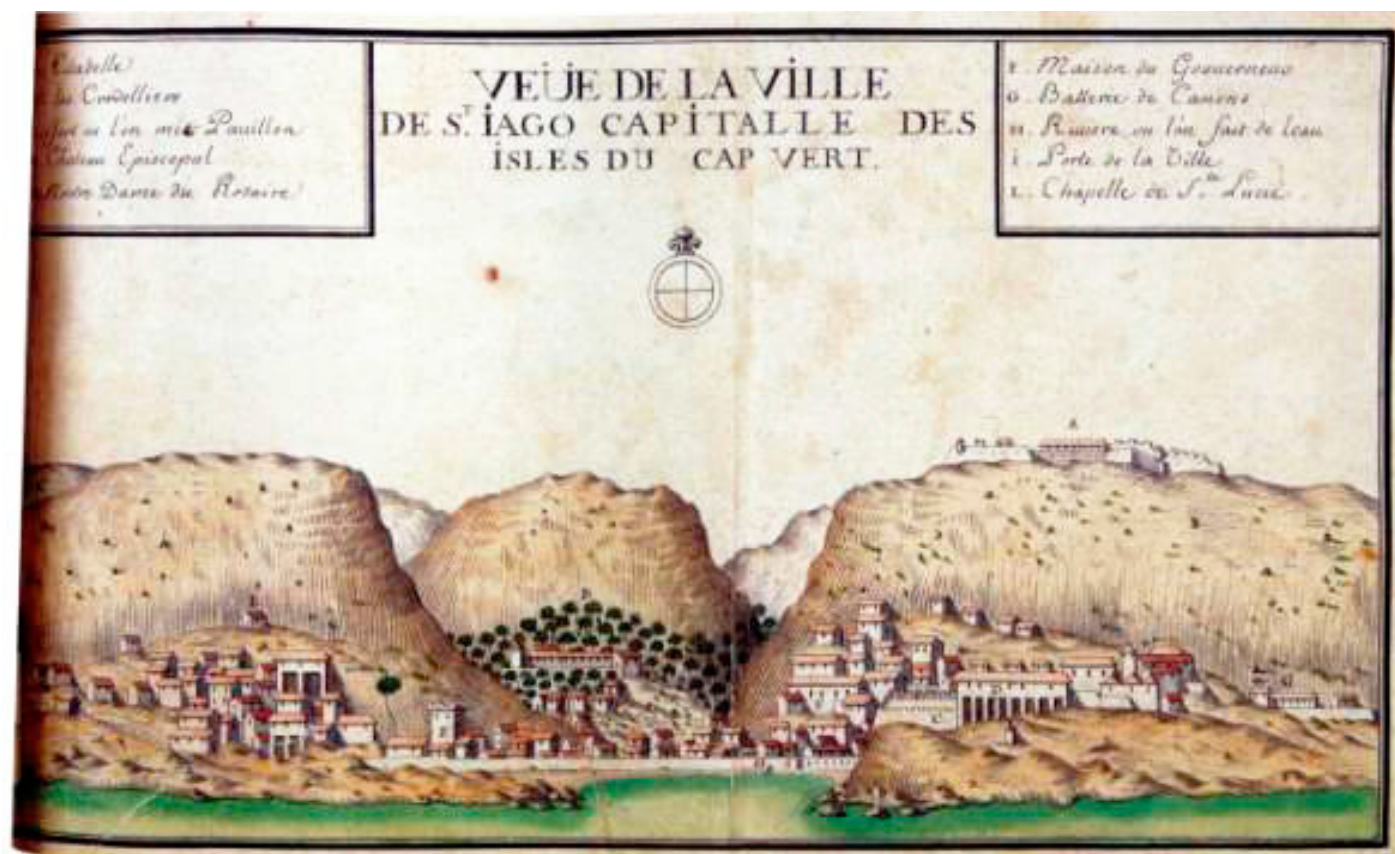 Citadelle
les Cordelliers
ou l'on met Pavillon
Chateau Episcopal
Notre Dame du Rosaire
VEÜE DE LA VILLE
DE S.T İAGO CAPİTALLE DES
İSLES DU CAP VERT.
F. Maison du Gouverneur
G. Batterie de Canons
H. Riviere ou l'on fait de leau
I. Porte de la Ville
L. Chapelle de Ste. Lucie.
A
G